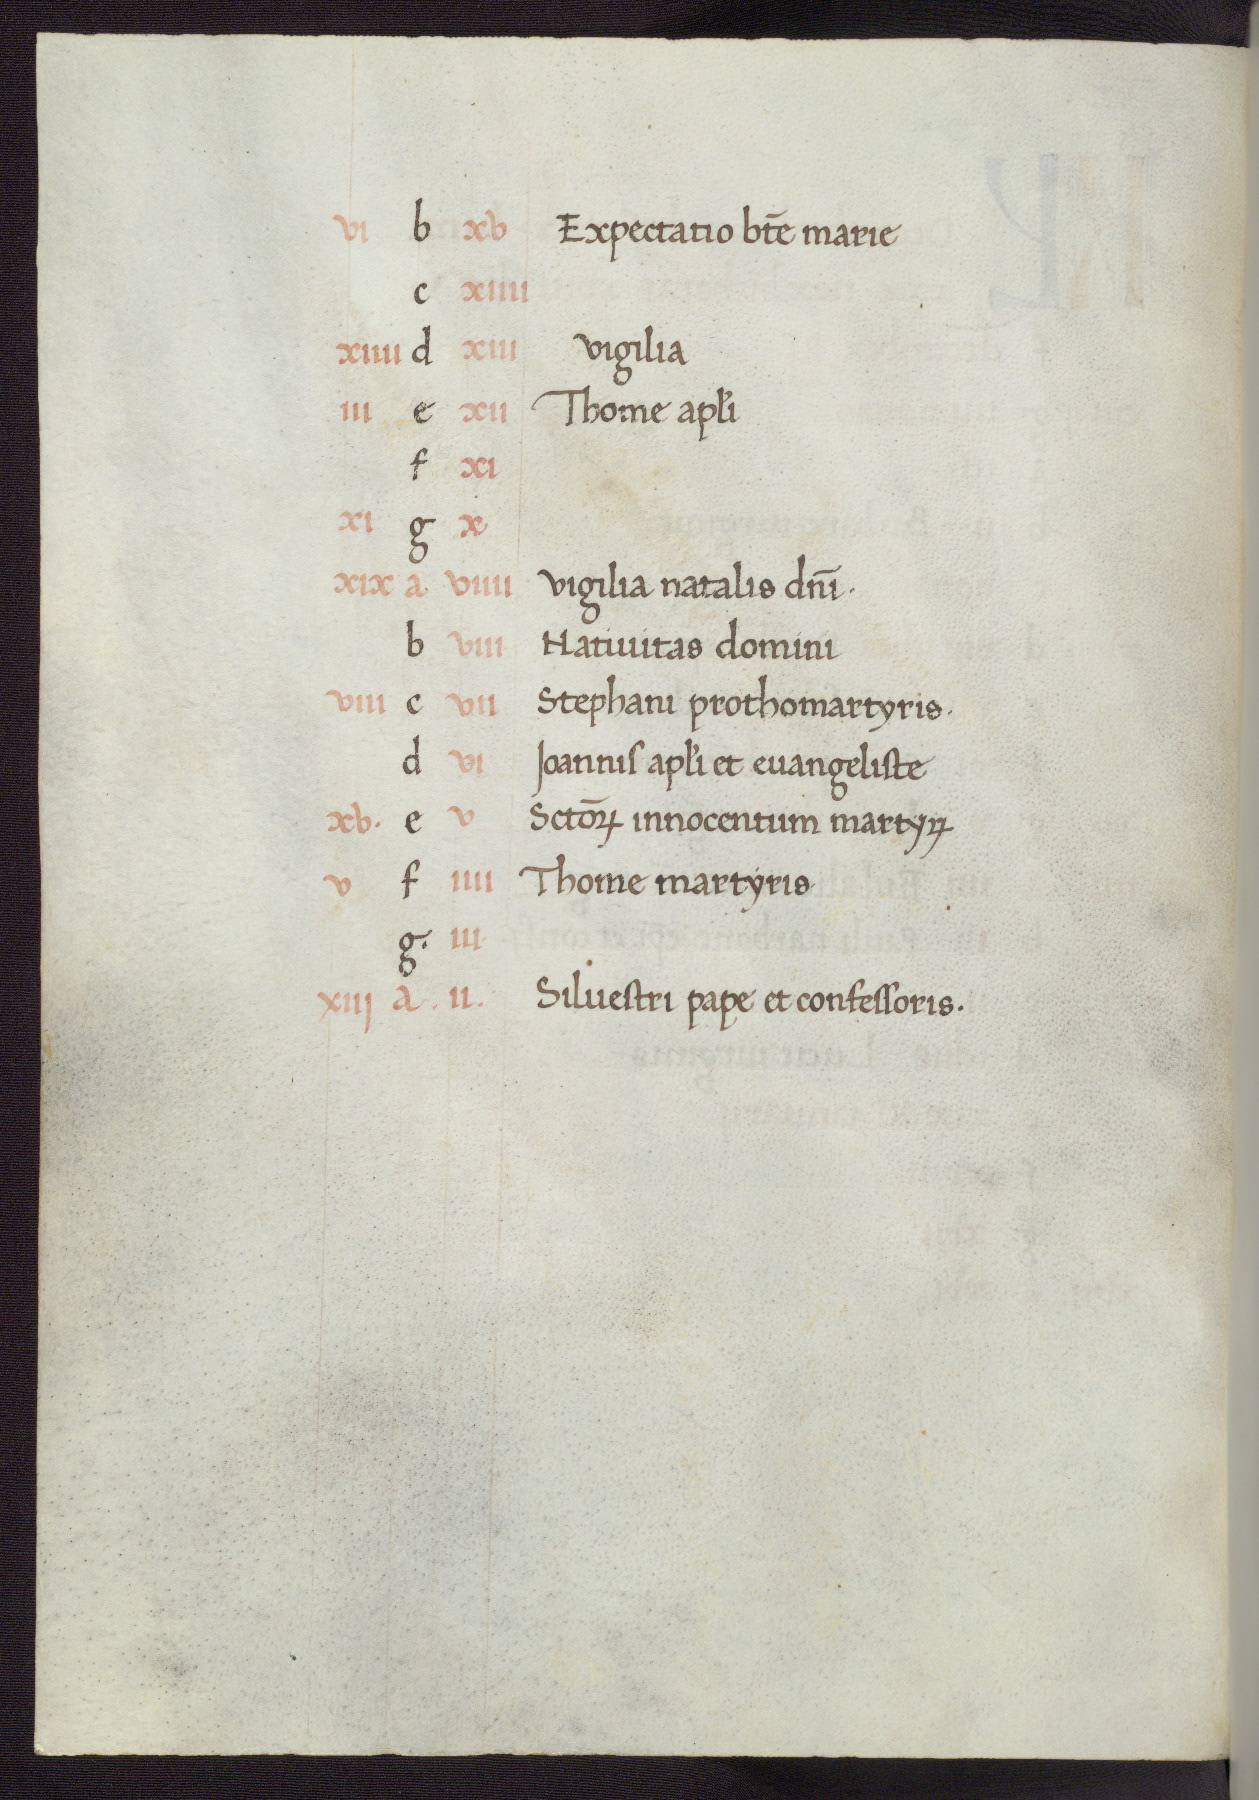 vi b xv Expectatio bt̄e marie
c xiiii
xiiii d xiii vigilia
iii e xii Thome apl̓i
f xi
xi g x
xix a viiii vigilia natalis dn̄i.
b viii Natiuitas domini
viii c vii Stephani prothomartyris.
d vi Joannis apl̓i et euangeliste
xv. e v Sctōꝝ innocentum martyꝝ
v f iiii Thome martyris
g. iii.
xiij a. ii. Siluestri pape et confessoris.